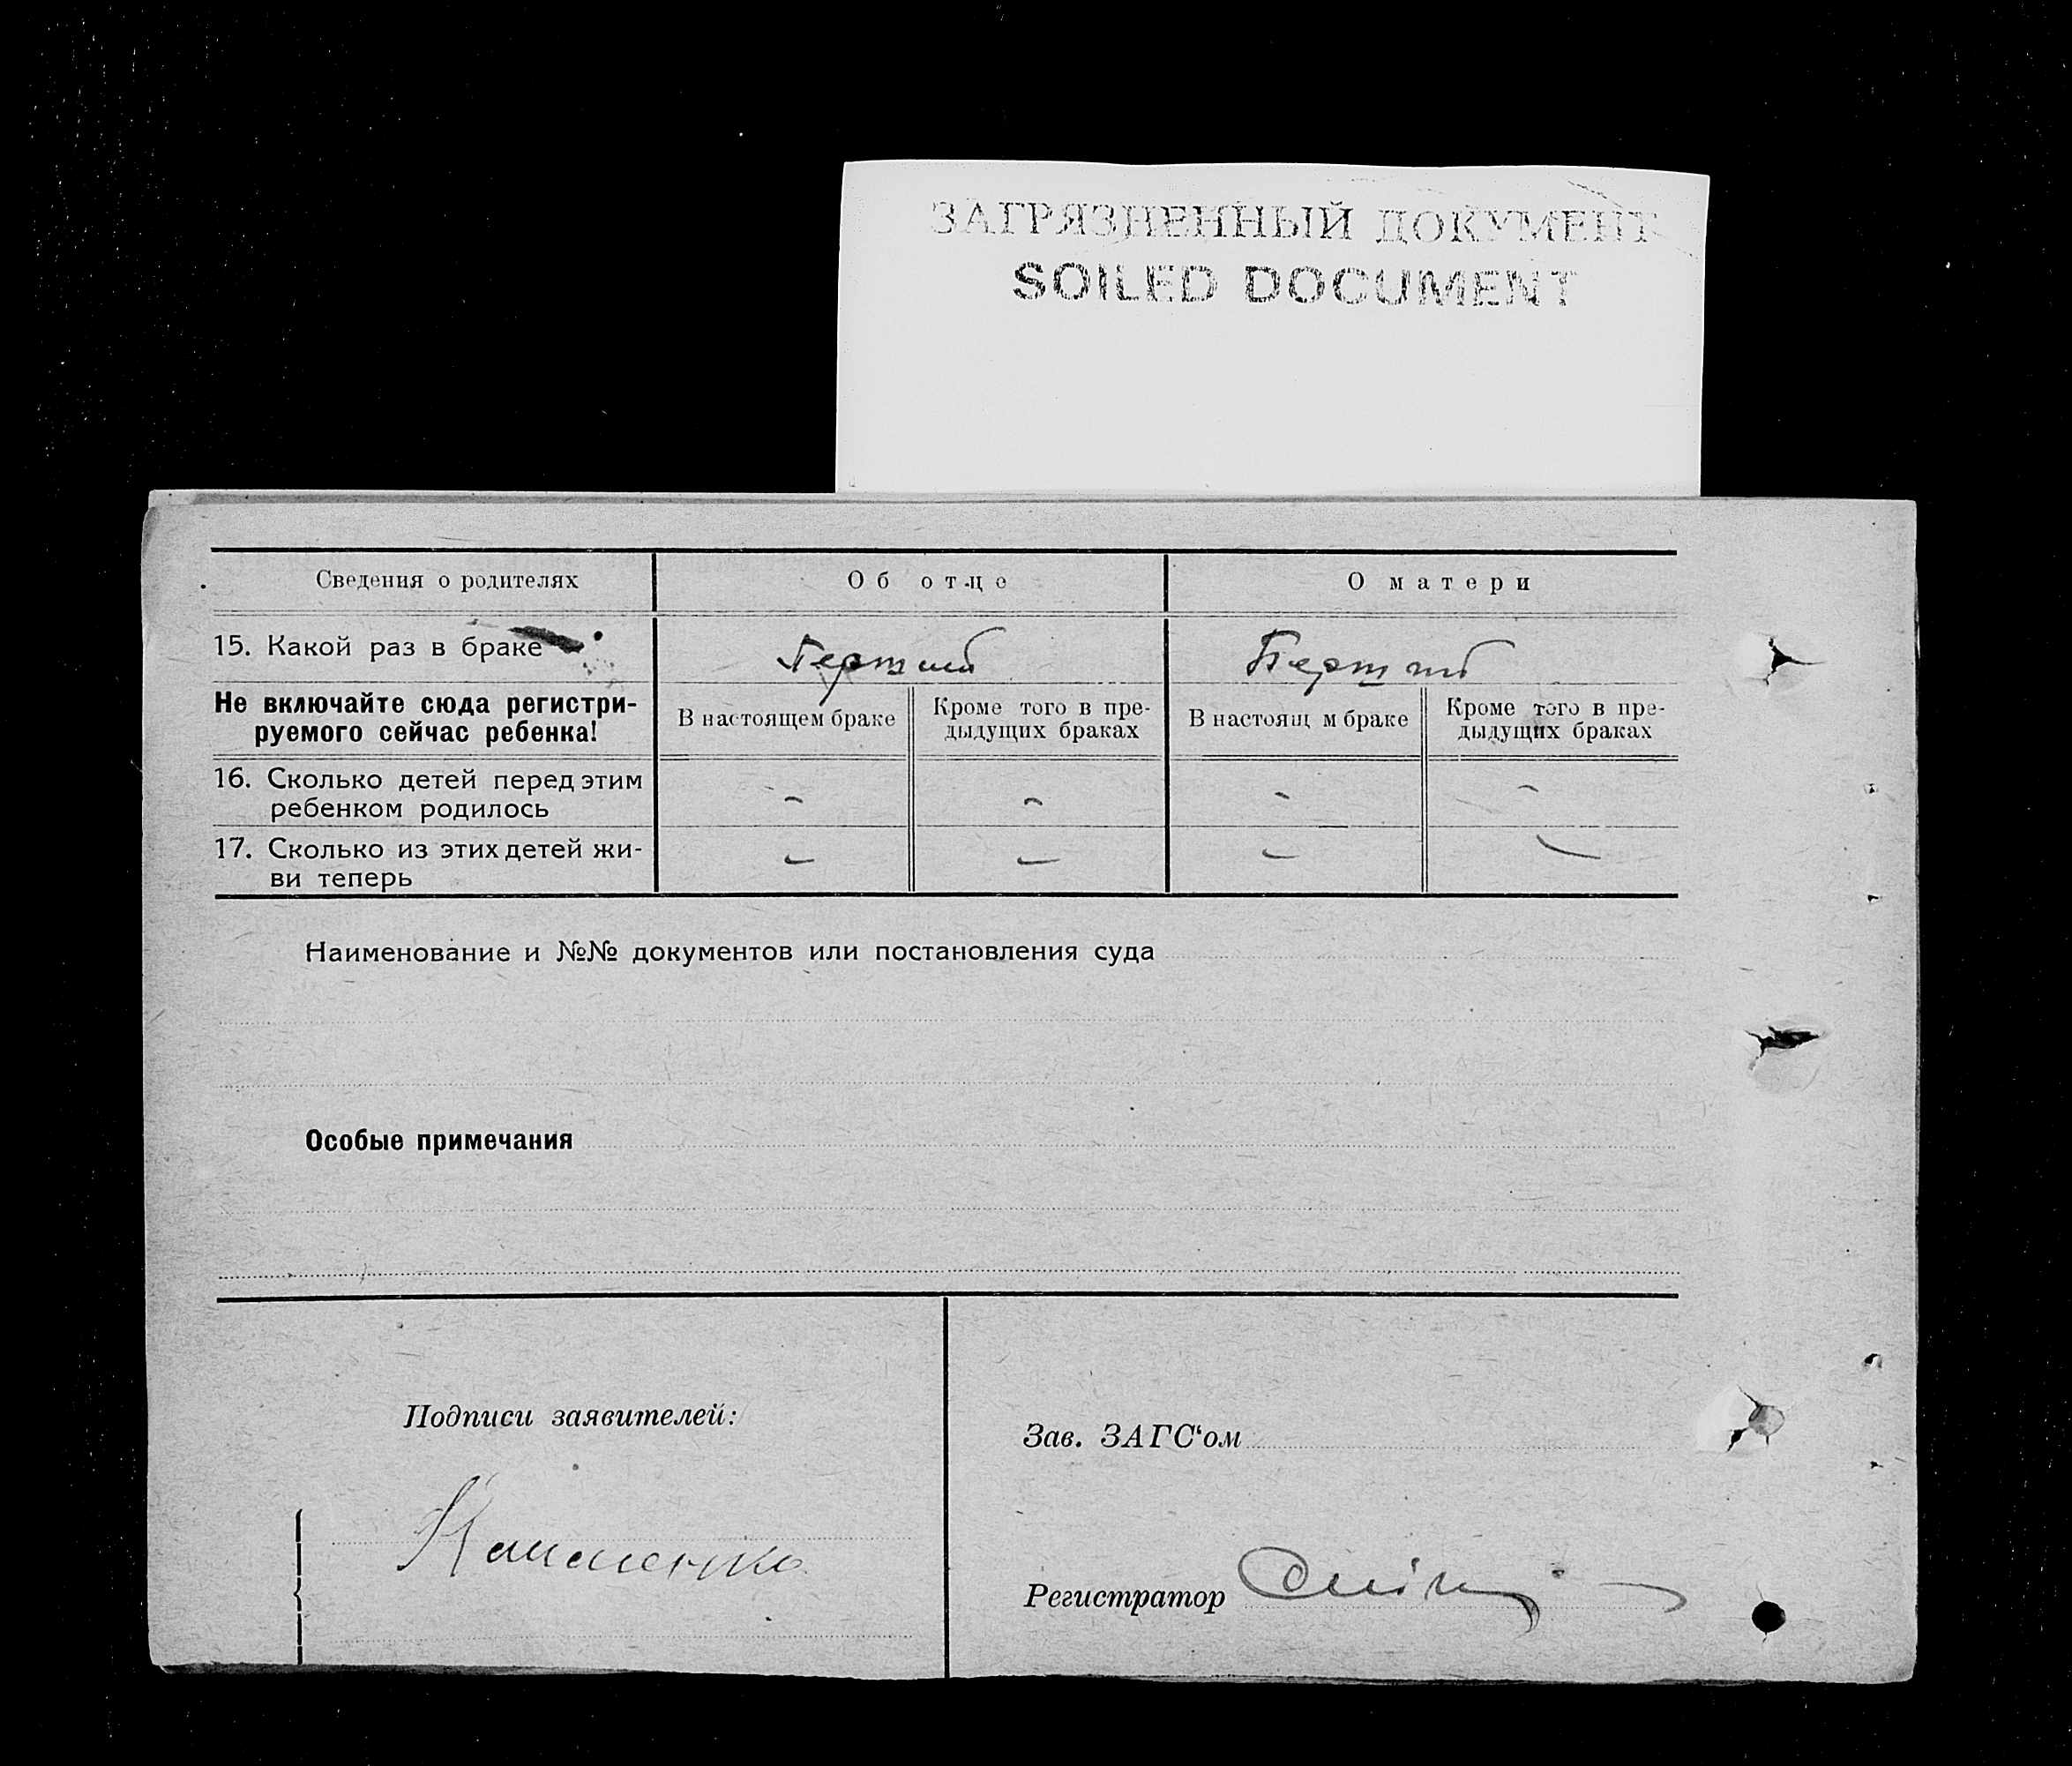 ЗАГРЯЗНЕННЫЙ ДОКУМЕНТ
SOILED DOCUMENT
Сведения о родителях Об отце О матери
15. Какой раз в браке Перший Перший
Не включайте сюда регистри-
руемого сейчас ребенка!
В настоящем браке Кроме того в пре-
дыдущих браках
В настоящ м браке Кроме того в пре-
дыдущих браках
16. Сколько детей перед этим
ребенком родилось - - - -
17. Сколько из этих детей жи-
ви теперь - - - -
Наименование и №№ документов или постановления суда
Особые примечания
Подписи заявителей:
Зав. ЗАГС‘ом
Регистратор